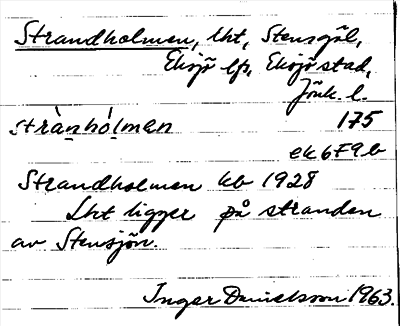 Strandholmen, lht, Stensgöl,
Eksjö lfs, Eksjö stad,
Jönk. l.
strànhólmen 175
ek 6F9b
Strandholmen kb 1928
Lht ligger på stranden
av Stensjön.
Inger Danielsson 1963.